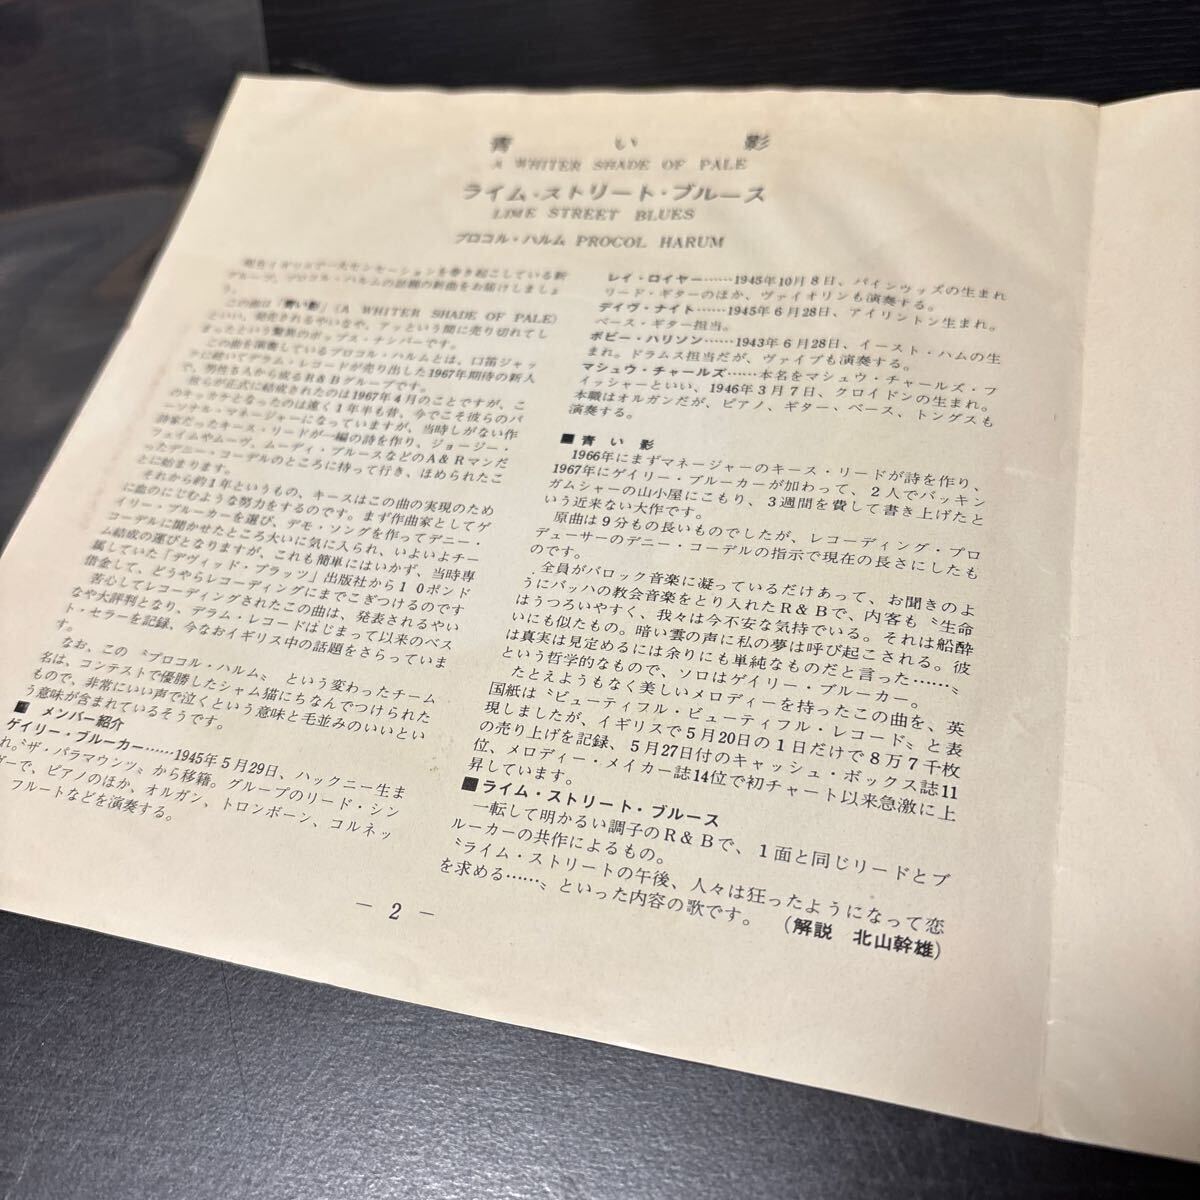 青い影
A WHITER SHADE OF PALE
ライム・ストリート・ブルース
LIME STREET BLUES
プロコル・ハルム PROCOL HARUM
現在イギリスで一大センセーションを巻き起こしている新
グループ、プロコル・ハルムの話題の新曲をお届けしましょ
う。
この曲は「青い影」(A WHITER SHADE OF PALE)
といい、発売されるやいなや、アッという間に売り切れてし
まったという驚異のポップス・ナンバーです。
この曲を演奏しているプロコル・ハルムとは、口笛ジャッ
クに続いてデラム・レコードが売り出した1967年期待の新人
で、男性5人から成るR&Bグループです。
彼らが正式に結成されたのは1967年4月のことですが、こ
のキッカケとなったのは遠く1年半も昔、今でこそ彼らのパ
ーソナル・マネージャーになっていますが、当時しがない作
詩家だったキース・リードが一編の詩を作り、ジョージー・
フェイムやムーヴ、ムーディ・ブルースなどのA&Rマンだ
ったデニー・コーデルのところに持って行き、ほめられたこ
とに始まります。
それから約1年というもの、キースはこの曲の実現のため
に血のにじむような努力をするのです。まず作曲家としてゲ
イリー・ブルーカーを選び、デモ・ソングを作ってデニー・
コーデルに聞かせたところ大いに気に入られ、いよいよチー
ム結成の運びとなりますが、これも簡単にはいかず、当時専
属していた「デヴィッド・プラッツ」出版社から10ポンド
借金して、どうやらレコーディングにまでこぎつけるのです
苦心してレコーディングされたこの曲は、発表されるやい
なや大評判となり、デラム・レコードはじまって以来のベス
ト・セラーを記録、今なおイギリス中の話題をさらっていま
す。
なお、この〝プロコル・ハルム〟という変わったチーム
名は、コンテストで優勝したシャム猫にちなんでつけられた
もので、非常にいい声で泣くという意味と毛並みのいいとい
う意味が含まれているそうです。
■ メンバー紹介
ゲイリー・ブルーカー……1945年5月29日、ハックニー生ま
れ。〝ザ・パラマウンツ〟から移籍。グループのリード・シン
ガーで、ピアノのほか、オルガン、トロンボーン、コルネッ
フルートなどを演奏する。
レイ・ロイヤー……1945年10月8日、パインウッズの生まれ
リード・ギターのほか、ヴァイオリンも演奏する。
デイヴ・ナイト……1945年6月28日、アイリントン生まれ。
ベース・ギター担当。
ボビー・ハリソン……1943年6月28日、イースト・ハムの生
まれ。ドラムス担当だが、ヴァイブも演奏する。
マシュウ・チャールズ……本名をマシュウ・チャールズ・フ
ィッシャーといい、1946年3月7日、クロイドンの生まれ。
本職はオルガンだが、ピアノ、ギター、ベース、トングスも
演奏する。
■ 青い影
1966年にまずマネージャーのキース・リードが詩を作り、
1967年にゲイリー・ブルーカーが加わって、2人でバッキン
ガムシャーの山小屋にこもり、3週間を費して書き上げたと
いう近来ない大作です。
原曲は9分もの長いものでしたが、レコーディング・プロ
デューサーのデニー・コーデルの指示で現在の長さにしたも
のです。
全員がバロック音楽に凝っているだけあって、お聞きのよ
うにバッハの教会音楽をとり入れたR&Bで、内客も〝生命
はうつろいやすく、我々は今不安な気持でいる。それは船酔
いにも似たもの。暗い雲の声に私の夢は呼び起こされる。彼
は真実は見定めるには余りにも単純なものだと言った……〟
という哲学的なもので、ソロはゲイリー・ブルーカー。
たとえようもなく美しいメロディーを持ったこの曲を、英
国紙は〝ビューティフル・ビューティフル・レコード〟と表
現しましたが、イギリスで5月20日の1日だけで8万7千枚
の売り上げを記録、5月27日付のキャッシュ・ボックス誌11
位、メロディー・メイカー誌14位で初チャート以来急激に上
昇しています。
■ライム・ストリート・ブルース
一転して明かるい調子のR&Bで、1面と同じリードとブ
ルーカーの共作によるもの。
〝ライム・ストリートの午後、人々は狂ったようになって恋
を求める……〟といった内容の歌です。 (解説 北山幹雄)
— 2 —